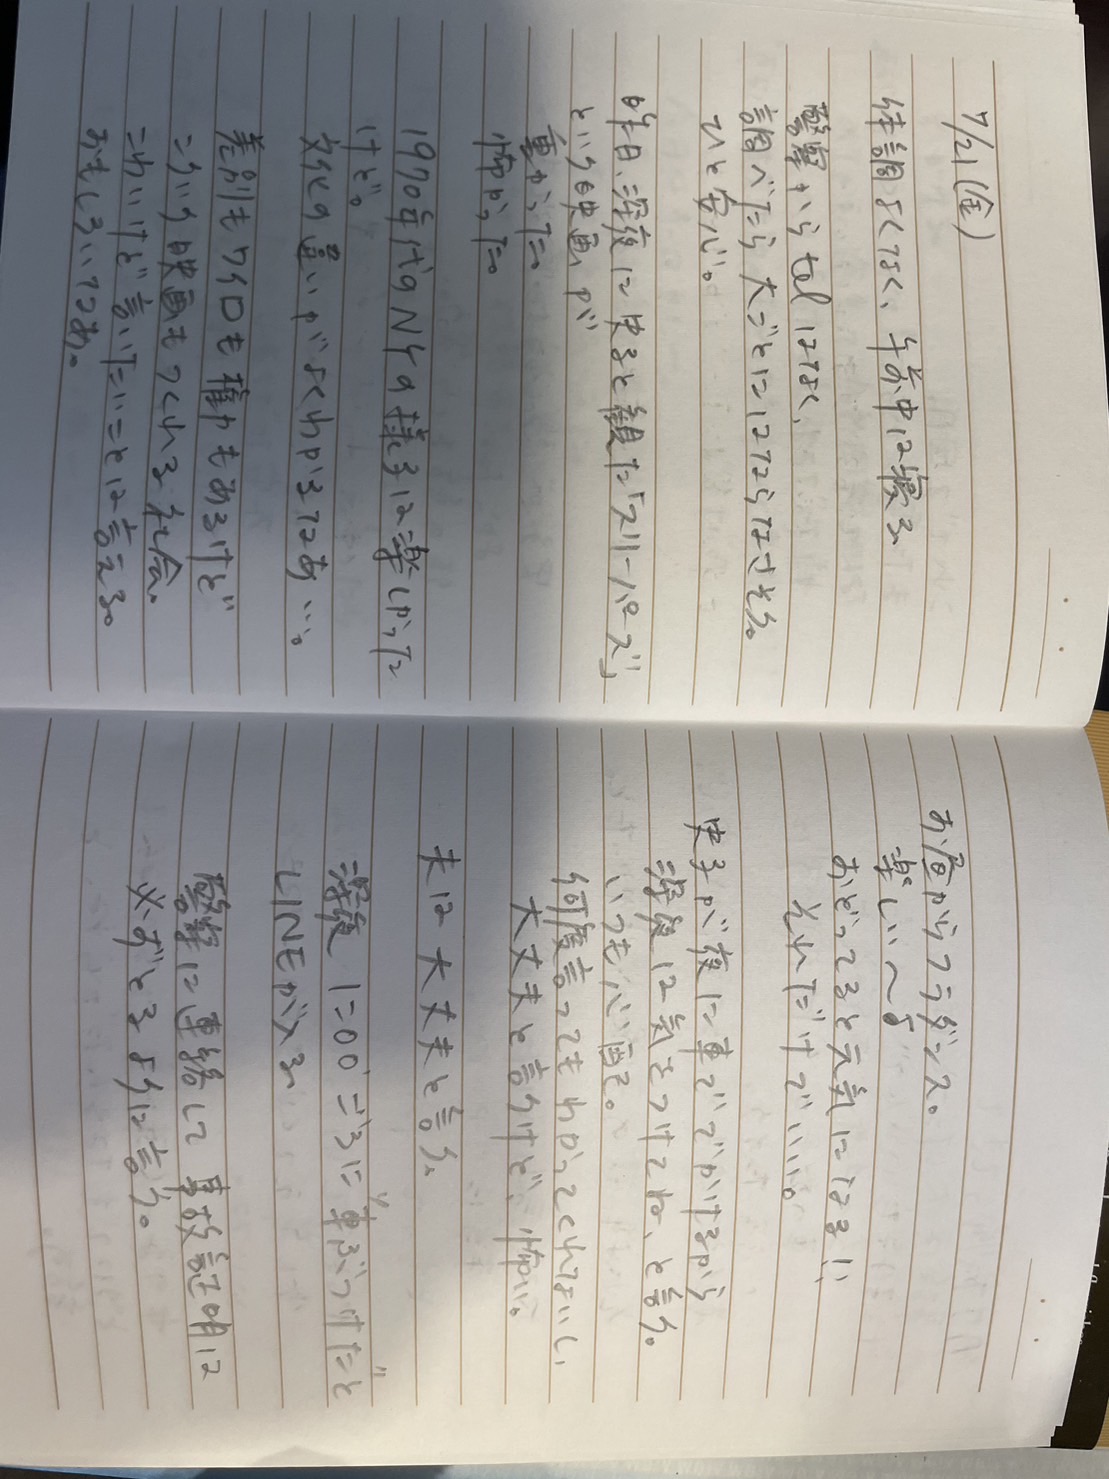 7/21(金)
体調よくなく、午前中は寝る
警察からtelはなく、
調べたら大ごとにはならなさそう。
ひと安心。
昨日、深夜に史子と観た「スリーパーズ」
という映画が
重かった。
怖かった。
1970年代のNYの様子は楽しかった
けど。
文化の違いがよくわかるなあ…。
差別もワロも権力もあるけど
こういう映画もつくれる社会。
こわいけど言いたいことは言える。
おもしろいなあ。
お昼からフラダンス。
楽しい〜♪
おどってると元気になる!!
それだけでいい。
史子が夜に車ででかけるから
深夜は気をつけてね、と言う。
いつも心配。
何度言ってもわかってくれないし、
大丈夫と言うけど、怖い。
夫は大丈夫と言う。
深夜1:00ごろに"車ぶつけた"と
LINEが入る
警察に連絡して事故証明は
必ずとるように言う。